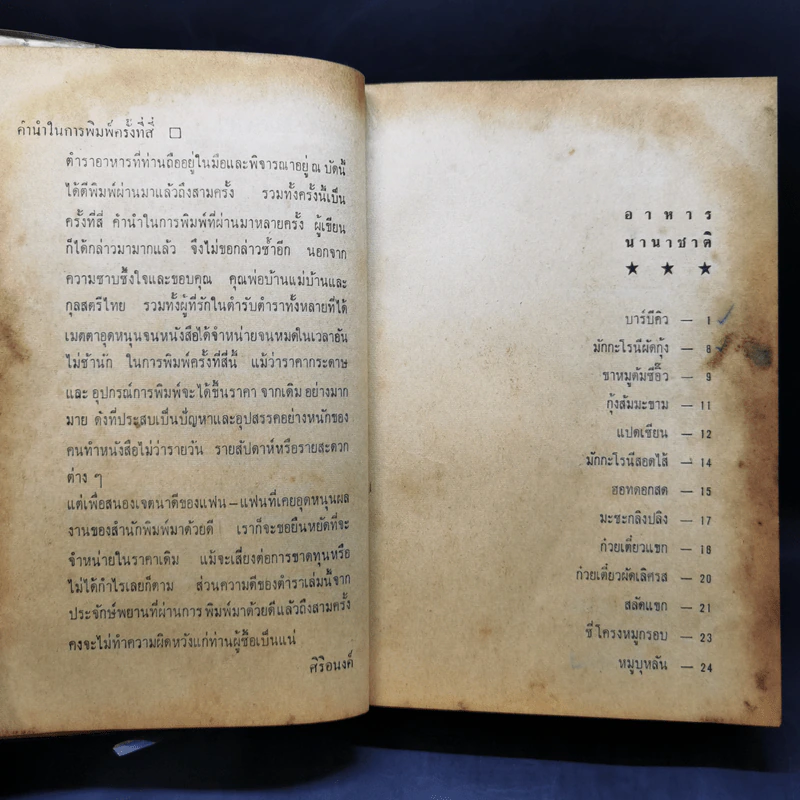 คำนำในการพิมพ์ครั้งที่สี่
ตำราอาหารที่ท่านถืออยู่ในมือและพิจารณาอยู่ ณ บัดนี้
ได้ตีพิมพ์ผ่านมาแล้วถึงสามครั้ง รวมทั้งครั้งนี้เป็น
ครั้งที่สี่ คำนำในการพิมพ์ที่ผ่านมาหลายครั้ง ผู้เขียน
ก็ได้กล่าวมามากแล้ว จึงไม่ขอกล่าวซ้ำอีก นอกจาก
ความซาบซึ้งใจและขอบคุณ คุณพ่อบ้านแม่บ้านและ
กุลสตรีไทย รวมทั้งผู้ที่รักในตำรับตำราทั้งหลายที่ได้
เมตตาอุดหนุนจนหนังสือได้จำหน่ายจนหมดในเวลาอัน
ไม่ช้านัก ในการพิมพ์ครั้งที่สี่นี้ แม้ว่าราคากระดาษ
และ อุปกรณ์การพิมพ์จะ ได้ขึ้นราคา จากเดิม อย่างมาก
มาย ดังที่ประสบเป็นปัญหาและอุปสรรคอย่างหนักของ
คนทำหนังสือไม่ว่ารายวัน รายสัปดาห์หรือรายสะดวก
ต่าง ๆ
แต่เพื่อสนองเจตนาดีของแฟน – แฟนที่เคยอุดหนุนผล
งานของสำนักพิมพ์มาด้วยดี เราก็จะขอยืนหยัดที่จะ
จำหน่ายในราคาเดิม แม้จะเสี่ยงต่อการขาดทุนหรือ
ไม่ได้กำไรเลยก็ตาม ส่วนความดีของตำราเล่มนี้จาก
ประจักษ์พยานที่ผ่านการ พิมพ์มาด้วยดีแล้วถึงสามครั้ง
คงจะไม่ทำความผิดหวังแก่ท่านผู้ซื้อเป็นแน่
ศิริอนงค์
อาหาร
นานาชาติ
★ ★ ★
บาร์บีคิว — 1
มักกะโรนีผัดกุ้ง — 8
ขาหมูต้มซีอิ๊ว — 9
กุ้งส้มมะขาม — 11
แปดเซียน — 12
มักกะโรนีสอดไส้ — 14
ฮอทดอกสด — 15
มะระกลิงปลิง — 17
ก๋วยเตี๋ยวแขก — 18
ก๋วยเตี๋ยวผัดเลิศรส — 20
สลัดแขก — 21
ซี่โครงหมูกรอบ — 23
หมูบุหลัน — 24